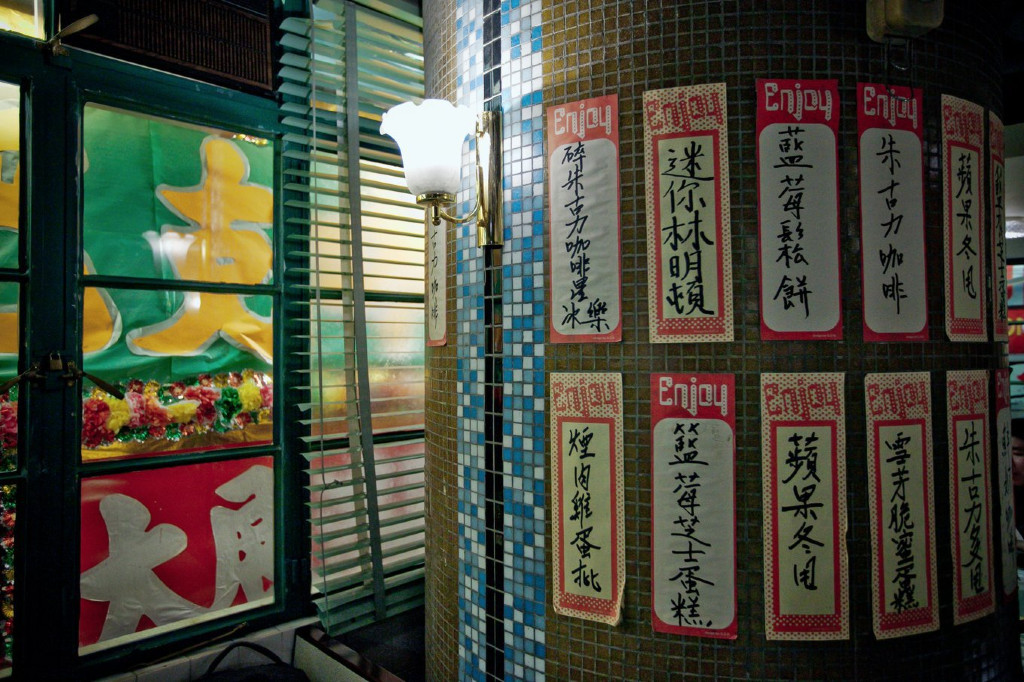 Enjoy
碎朱古力咖啡星冰樂
Enjoy
迷你林明頓
Enjoy
藍莓鬆餅
Enjoy
朱古力咖啡
Enjoy
蘋果冬甩
Enjoy
煙肉雞蛋批
Enjoy
藍莓芝士蛋糕
Enjoy
蘋果冬甩
Enjoy
雪芳脆塗蛋糕
Enjoy
朱古力冬甩
力咖啡
大